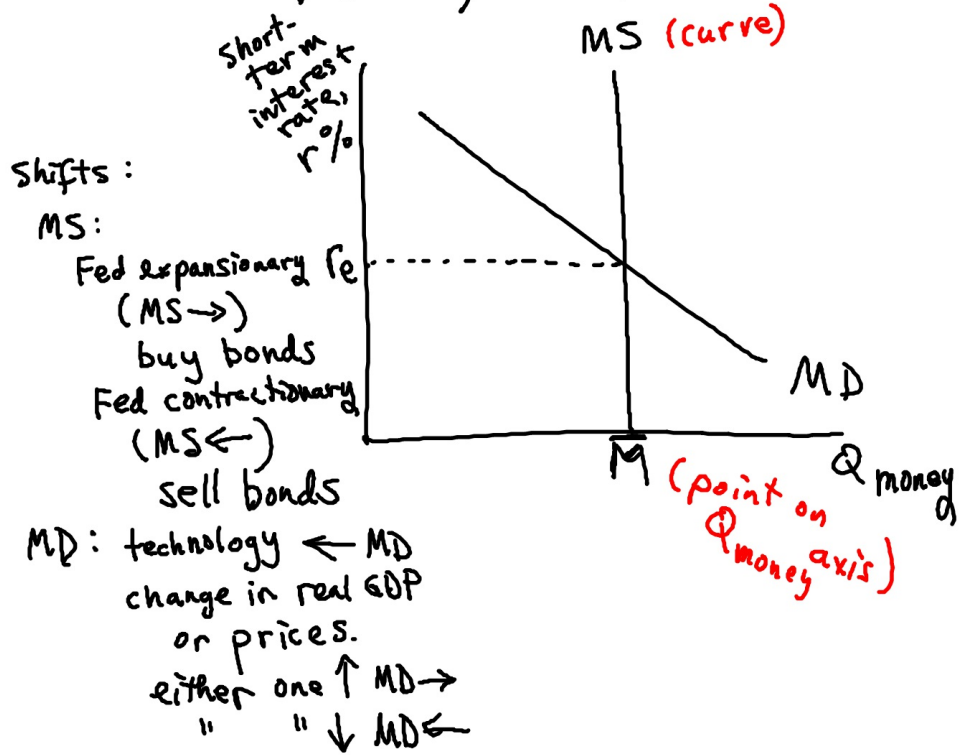 MS (curve)
short-
term
interest
rate,
r%
Shifts:
MS:
Fed expansionary
(MS→)
buy bonds
Fed contractionary
(MS←)
sell bonds
MD: technology ← MD
change in real GDP
or prices.
either one ↑ MD→
" " ↓ MD←
re
MD
M̅
Q money
(point on
Q money axis)